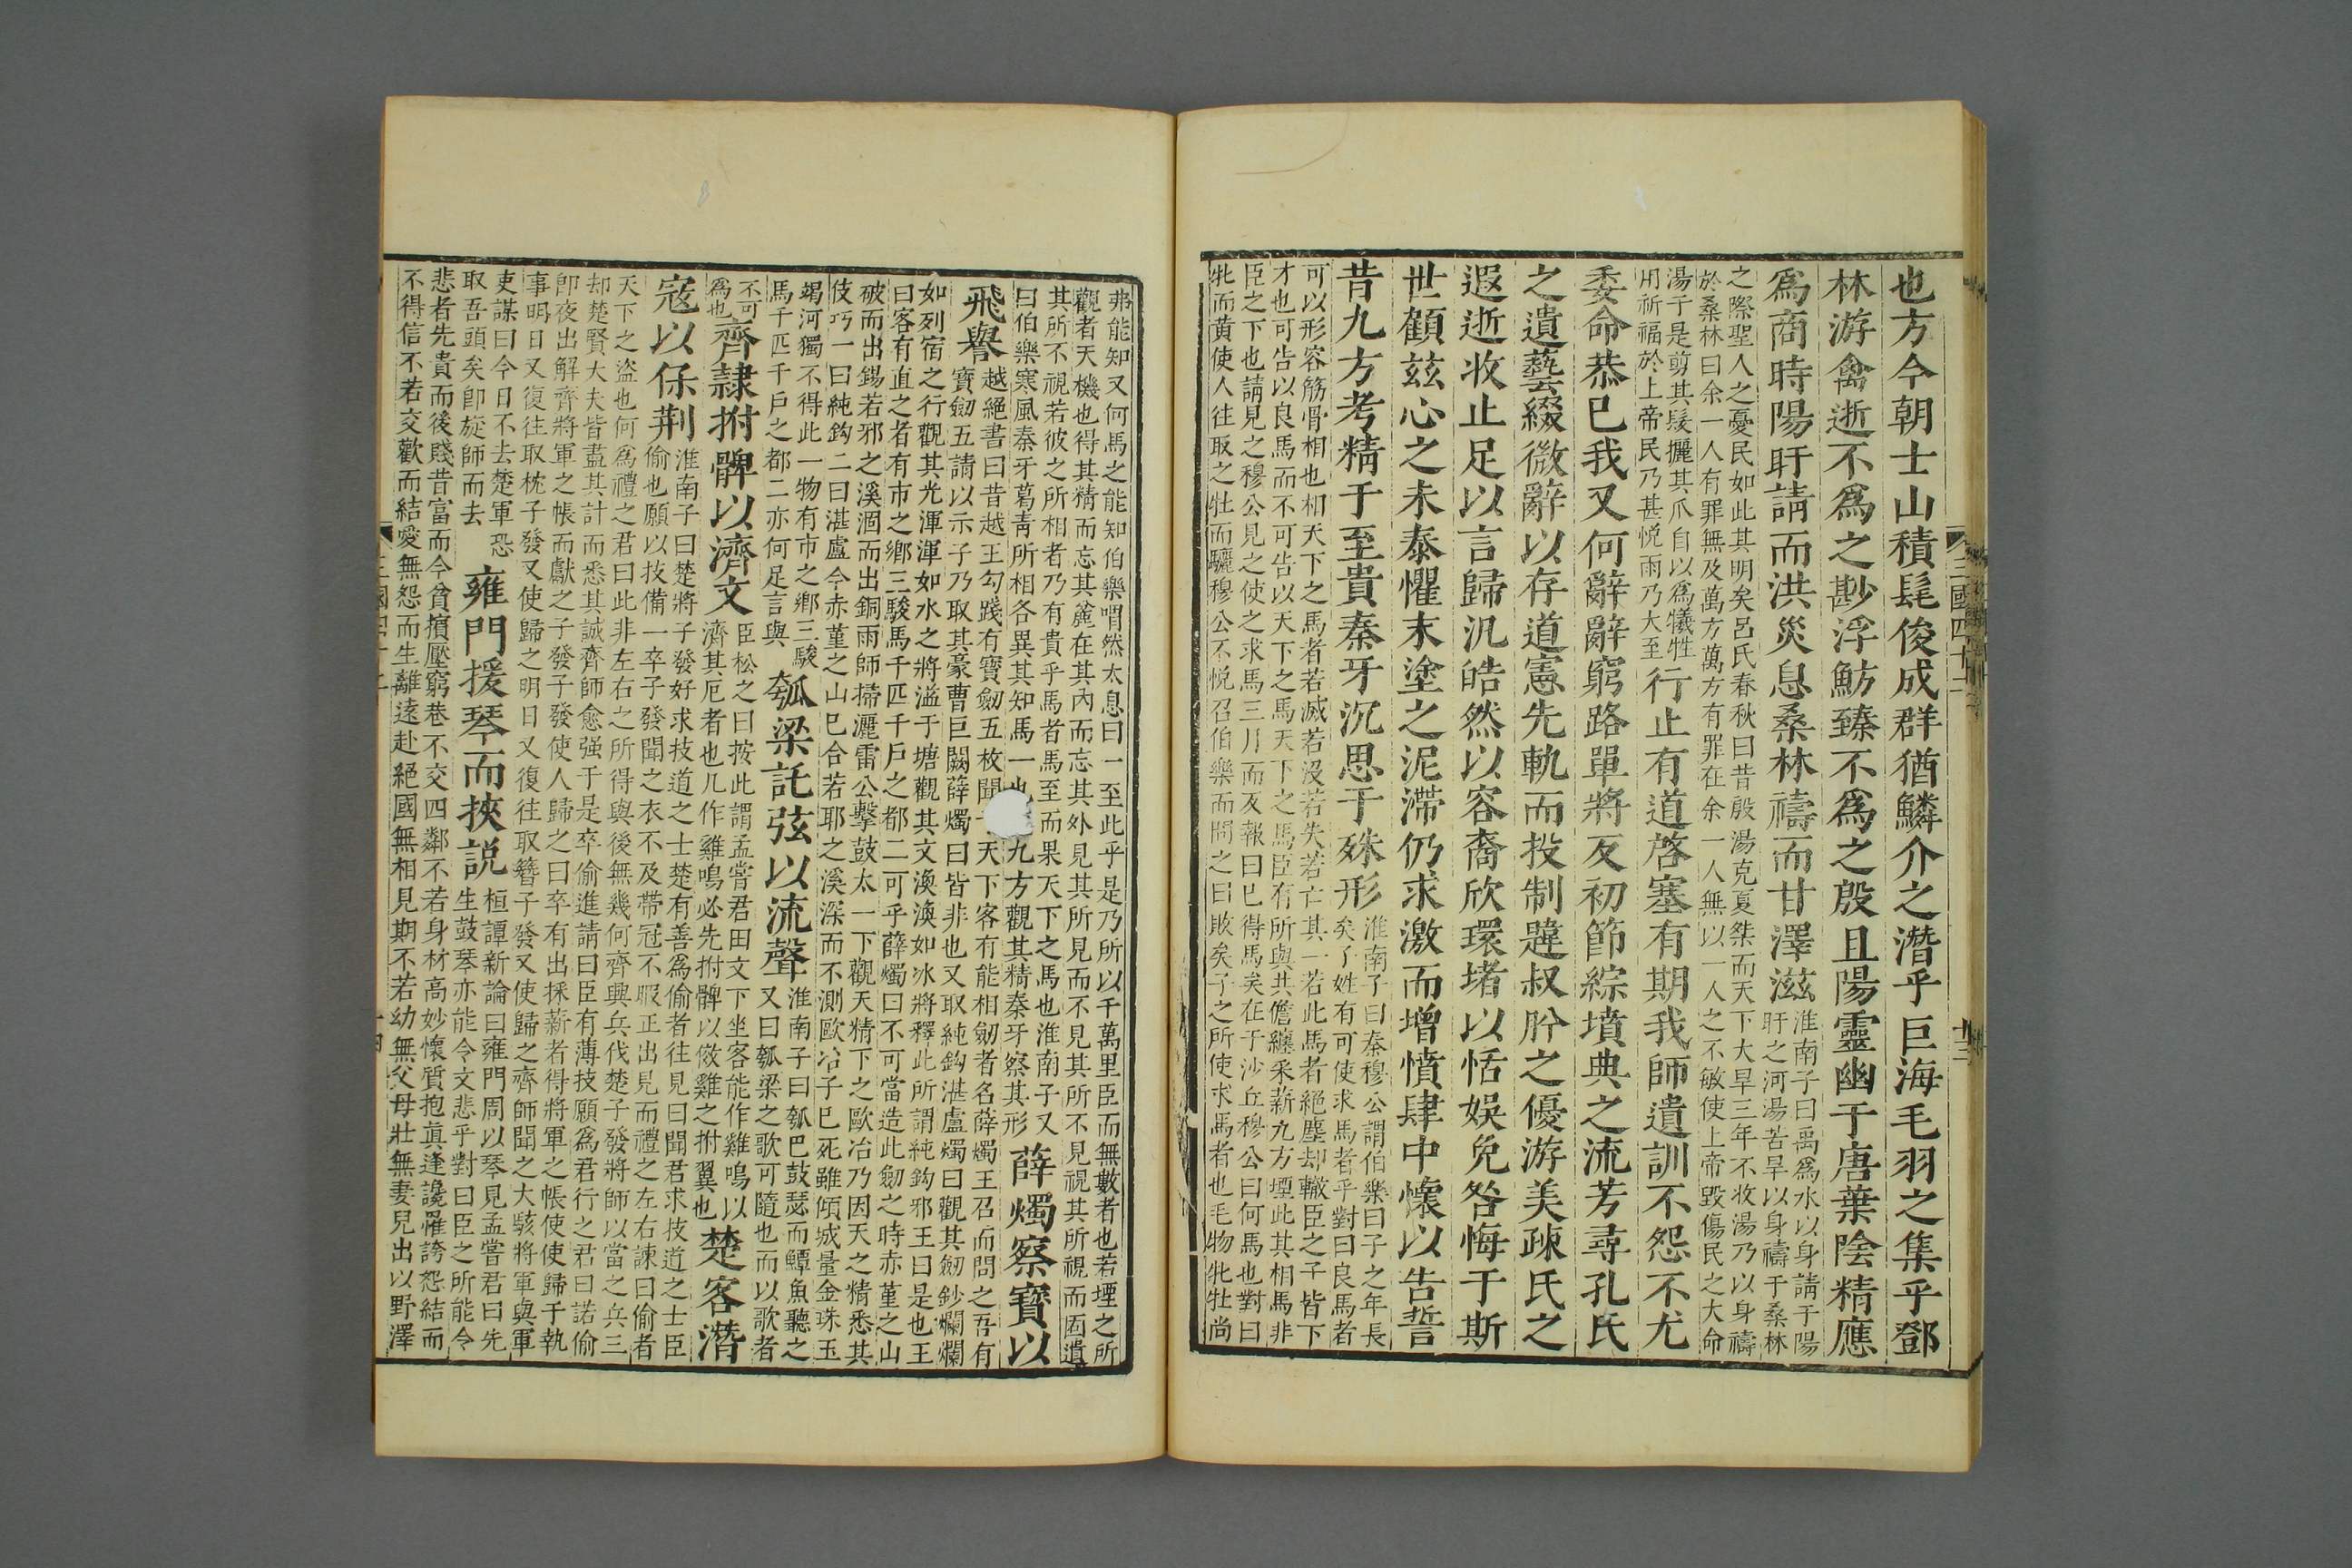 三國四十二
十三
也方今朝士山積髦俊成群猶鱗介之潛乎巨海毛羽之集乎鄧
林游禽逝不爲之尠浮魴臻不爲之殷且陽靈幽于唐葉陰精應
爲商時陽盱請而洪災息桑林禱而甘澤滋
淮南子曰禹爲水以身請于陽
盱之河湯苦旱以身禱于桑林
之際聖人之憂民如此其明矣呂氏春秋曰昔殷湯克夏桀而天下大旱三年不收湯乃以身禱
於桑林曰余一人有罪無及萬方萬方有罪在余一人無以一人之不敏使上帝毀傷民之大命
湯于是剪其髮攦其爪自以爲犧牲
用祈福於上帝民乃甚悅雨乃大至
行止有道啓塞有期我師遺訓不怨不尤
委命恭已我又何辭辭窮路單將反初節綜墳典之流芳尋孔氏
之遺藝綴微辭以存道憲先軌而投制韙叔肸之優游美疎氏之
遐逝收止足以言歸汎皓然以容裔欣環堵以恬娛免咎悔于斯
世顧茲心之未泰懼末塗之泥滯仍求激而增憤肆中懷以告誓
昔九方考精于至貴秦牙沉思于殊形
淮南子曰秦穆公謂伯樂曰子之年長
矣子姓有可使求馬者乎對曰良馬者
可以形容筋骨相也相天下之馬者若滅若沒若失若亡其一若此馬者絕塵却轍臣之子皆下
才也可告以良馬而不可告以天下之馬天下之馬臣有所與共儋纏采薪九方堙此其相馬非
臣之下也請見之穆公見之使之求馬三月而反報曰已得馬矣在于沙丘穆公曰何馬也對曰
牝而黃使人往取之牡而驪穆公不悅召伯樂而問之曰敗矣子之所使求馬者也毛物牝牡尚
弗能知又何馬之能知伯樂喟然太息曰一至此乎是乃所以千萬里臣而無數者也若堙之所
觀者天機也得其精而忘其麄在其內而忘其外見其所見而不見其所不見視其所視而遺
其所不視若彼之所相者乃有貴乎馬者馬至而果天下之馬也淮南子又
曰伯樂寒風秦牙葛青所相各異其知馬一也九方觀其精秦牙察其形
薛燭察寶以
飛譽
越絕書曰昔越王勾踐有寶劒五枚聞于天下客有能相劒者名薛燭王召而問之吾有
寶劒五請以示子乃取其豪曹巨闕薛燭曰皆非也又取純鈎湛盧燭曰觀其劒鈔爛爛
如列宿之行觀其光渾渾如水之將溢于塘觀其文渙渙如冰將釋此所謂純鈎邪王曰是也王
曰客有直之者有市之鄉三駿馬千匹千戶之都二可乎薛燭曰不可當造此劒之時赤堇之山
破而出錫若邪之溪涸而出銅雨師掃灑雷公擊鼓太一下觀天精下之歐冶乃因天之精悉其
伎巧一曰純鈎二曰湛盧今赤堇之山已合若耶之溪深而不測歐冶子已死雖傾城量金珠玉
竭河獨不得此一物有市之鄉三駿
馬千匹千戶之都二亦何足言與
瓠梁託弦以流聲
淮南子曰瓠巴鼓瑟而鱏魚聽之
又曰瓠梁之歌可隨也而以歌者
不可
爲也
齊隷拊髀以濟文
臣松之曰按此謂孟嘗君田文下坐客能作雞鳴以
濟其厄者也凡作雞鳴必先拊髀以傚雞之拊翼也
楚客潛
寇以保荆
淮南子曰楚將子發好求技道之士楚有善爲偷者往見曰聞君求技道之士臣
偷也願以技備一卒子發聞之衣不及帶冠不暇正出見而禮之左右諫曰偷者
天下之盜也何爲禮之君曰此非左右之所得與後無幾何齊興兵伐楚子發將師以當之兵三
却楚賢大夫皆盡其計而悉其誠齊師愈强于是卒偷進請曰臣有薄技願爲君行之君曰諾偷
即夜出解齊將軍之帳而獻之子發子發使人歸之曰卒有出採薪者得將軍之帳使使歸于執
事明日又復往取枕子發又使歸之明日又復往取簪子發又使歸之齊師聞之大駭將軍與軍
吏謀曰今日不去楚軍恐
取吾頭矣卽旋師而去
雍門援琴而挾説
桓譚新論曰雍門周以琴見孟嘗君曰先
生鼓琴亦能令文悲乎對曰臣之所能令
悲者先貴而後賤昔富而今貧擯壓窮巷不交四鄰不若身材高妙懷質抱眞逢讒罹謗怨結而
不得信不若交歡而結愛無怨而生離遠赴絕國無相見期不若幼無父母壯無妻兒出以野澤